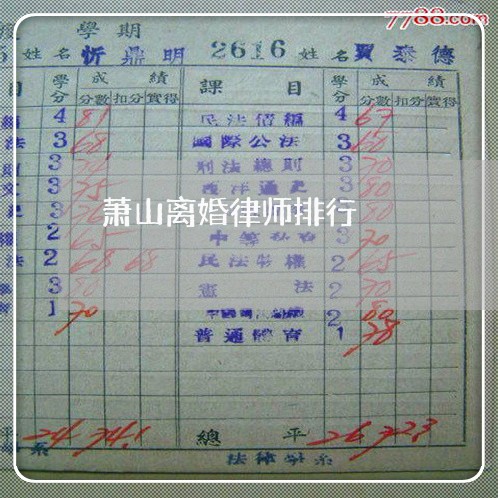 7788.com
學期
姓名 忻鼎明 2616 姓名 賈泰德
目 學分 成績 課目 學分 成績
分數 扣分 實得 分數 扣分 實得
4 81 民法債編 4 67
法 3 68 國際公法 3 60
3 刑法總則 3 70
3 75 西洋通史 3 80
萧山离婚律师排行
2 65 3 70
法 2 68 68 民法物權 2 65
3 80 憲法 2 70
1 70 2 80
普通體育 1 78
平 24 74.1 總平 26 72.3
系 法律學系